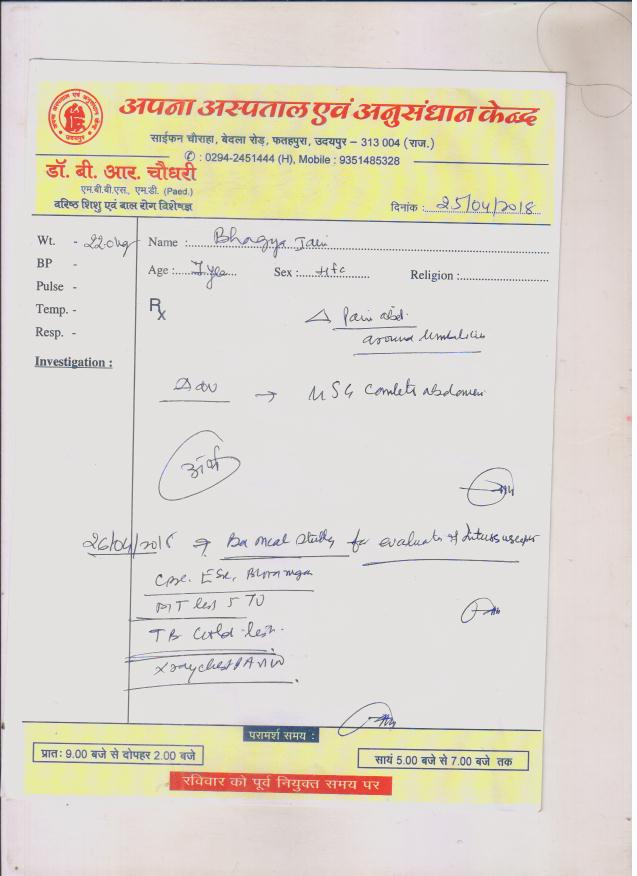 अपना अस्पताल एवं अनुसंधान केन्द्र
साईफन चौराहा, बेदला रोड़, फतहपुरा, उदयपुर – 313 004 (राज.)
✆ : 0294-2451444 (H), Mobile : 9351485328
डॉ. बी. आर. चौधरी
एम.बी.बी.एस., एम.डी. (Paed.)
वरिष्ठ शिशु एवं बाल रोग विशेषज्ञ
दिनांक : 25/04/2018
Wt. - 22.0kg
Name : Bhagya Jain
BP -
Age : 7 yrs Sex : Religion :
Pulse -
Temp. -
Resp. -
Rx
△ Pain abd.
around Umbilicus
Investigation :
Adv → USG abdomen
26/04/2018 ⇒ Ba meal study for evaluate of
CBC, ESR,
MT test 5 TU
TB Gold test.
Xray chest PA view
परामर्श समय :
प्रातः 9.00 बजे से दोपहर 2.00 बजे
सायं 5.00 बजे से 7.00 बजे तक
रविवार को पूर्व नियुक्त समय पर